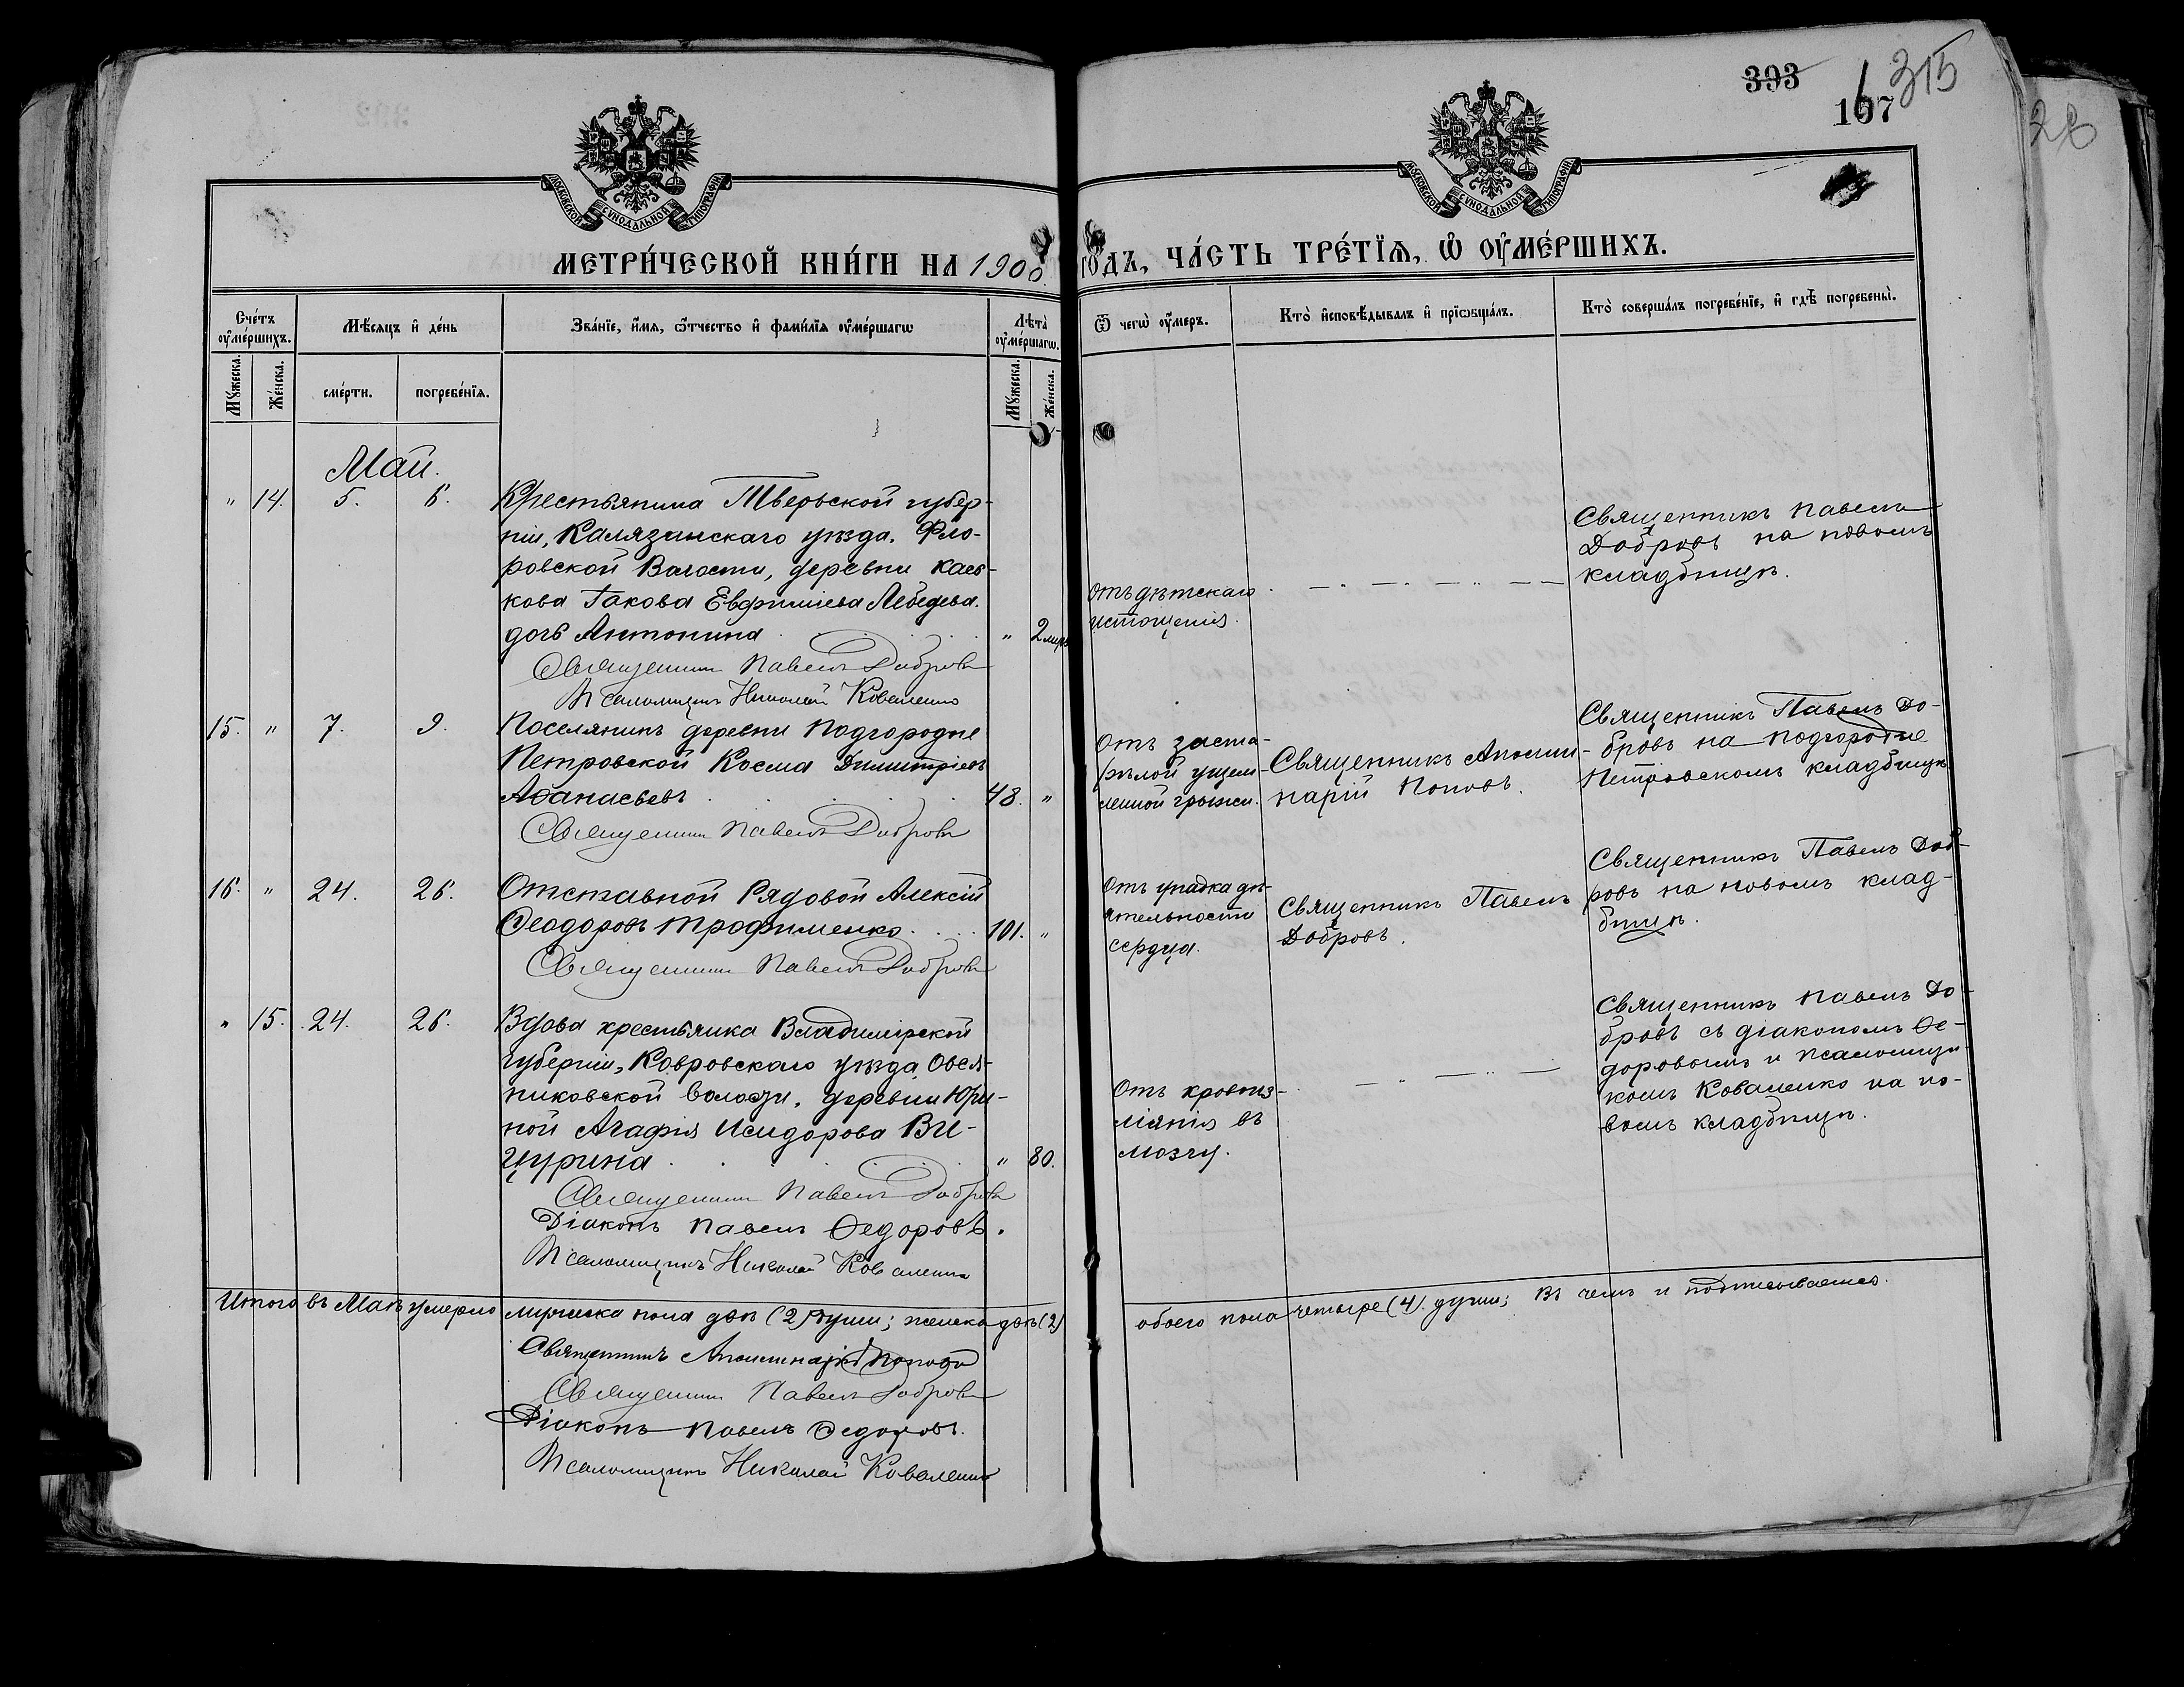 393
315
167
28
МОСКОВСКОЙ СѴНОДАЛЬНОЙ ТИПОГРАФІИ
МОСКОВСКОЙ СѴНОДАЛЬНОЙ ТИПОГРАФІИ
МЕТРИ́ЧЕСКОЙ КНИ́ГИ НА 1900 ГО́ДЪ, ЧА́СТЬ ТРЕ́ТЇѦ, Ѡ҆ ОУ҆МЕ́РШИХЪ.
Сче́тъ оу҆ме́ршихъ.
Мꙋ́жеска.
Же́нска.
Мѣ́сяцъ и҆ де́нь
сме́рти.
погребе́нїѧ.
Зва́нїе, и҆́мѧ, ѻ҆́тчество и҆ фами́лїѧ оу҆ме́ршагѡ
Лѣ́та оу҆ме́ршагѡ.
Мꙋ́жеска.
Же́нска.
Ѿ чегѡ̀ оу҆́меръ.
Кто̀ и҆сповѣ́дывалъ и҆ прїѡбща́лъ.
Кто̀ соверша́лъ погребе́нїе, и҆ гдѣ̀ погребены̀.
Май.
" 14. 5. 6. Крестьянина Тверьской губер-
ніи, Калязинскаго уѣзда, Фло-
ровской Волости, деревни Каев-
кова Іакова Евфиміева Лебедева.
дочь Антонина " 2 мѣс
Священникъ Павелъ Добровъ
Псаломщикъ Николай Коваленко
Отъ дѣтскаго
истощенія.
Священникъ Павелъ
Добровъ на новомъ
кладбищѣ.
15. " 7. 9. Поселянинъ деревни Подгородне
Петровской Косма Димитріевъ
Аѳанасьевъ 48. "
Священникъ Павелъ Добровъ
Отъ заста-
рѣлой ущем-
ленной грыжи.
Священникъ Аполли-
нарій Поповъ.
Священникъ Павелъ До-
бровъ на Подгородне
Петровскомъ кладбищѣ
16. " 24. 26. Отставной Рядовой Алексій
Ѳеодоровъ Трофименко 101. "
Священникъ Павелъ Добровъ
Отъ упадка дѣ-
ятельности
сердца.
Священникъ Павелъ
Добровъ.
Священникъ Павелъ Доб-
ровъ на новомъ клад-
бищѣ.
" 15. 24. 26. Вдова крестьянка Владимірской
губерніи, Ковровскаго уѣзда, Овся-
никовской волости, деревни Юри-
ной Агафія Исидорова Ви-
цурина " 80.
Священникъ Павелъ Добровъ
Діаконъ Павелъ Ѳедоровъ.
Псаломщикъ Николай Коваленко
Отъ кровоиз-
ліянія въ
мозгу.
Священникъ Павелъ До-
бровъ съ діакономъ Ѳе-
доровымъ и псаломщи-
комъ Коваленко на но-
вомъ кладбищѣ.
Итого въ Маѣ умерло мужеска пола двѣ (2) души; женска двѣ (2)
обоего пола четыре (4) души; Въ чемъ и подписываемся.
Священникъ Аполлинарій Поповъ
Священникъ Павелъ Добровъ
Діаконъ Павелъ Ѳедоровъ.
Псаломщикъ Николай Коваленко